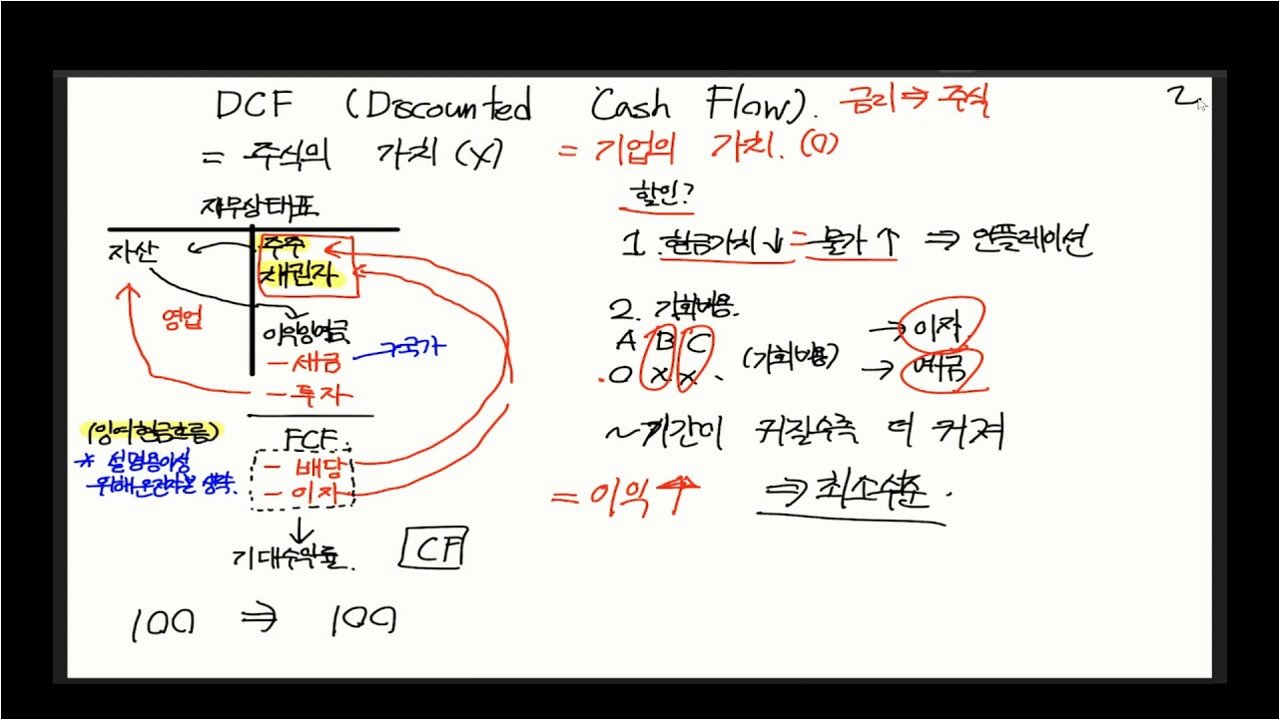 DCF (Discounted Cash Flow). 금리 ⇒ 주식
2
= 주식의 가치 (X) = 기업의 가치. (O)
재무상태표
자산
주주
채권자
영업
이익잉여금
- 세금 → 국가
- 투자
(잉여현금흐름)
FCF
* 설명용이성
위해 운전자본 생략.
- 배당
- 이자
기대수익률.
CF
100 ⇒ 100
할인?
1. 현금가치↓ = 물가↑ ⇒ 인플레이션
2. 기회비용.
A B C
O X X
(기회비용)
→ 이자
→ 예금
~기간이 커질수록 더 커져
= 이익↑ ⇒ 최소수준.